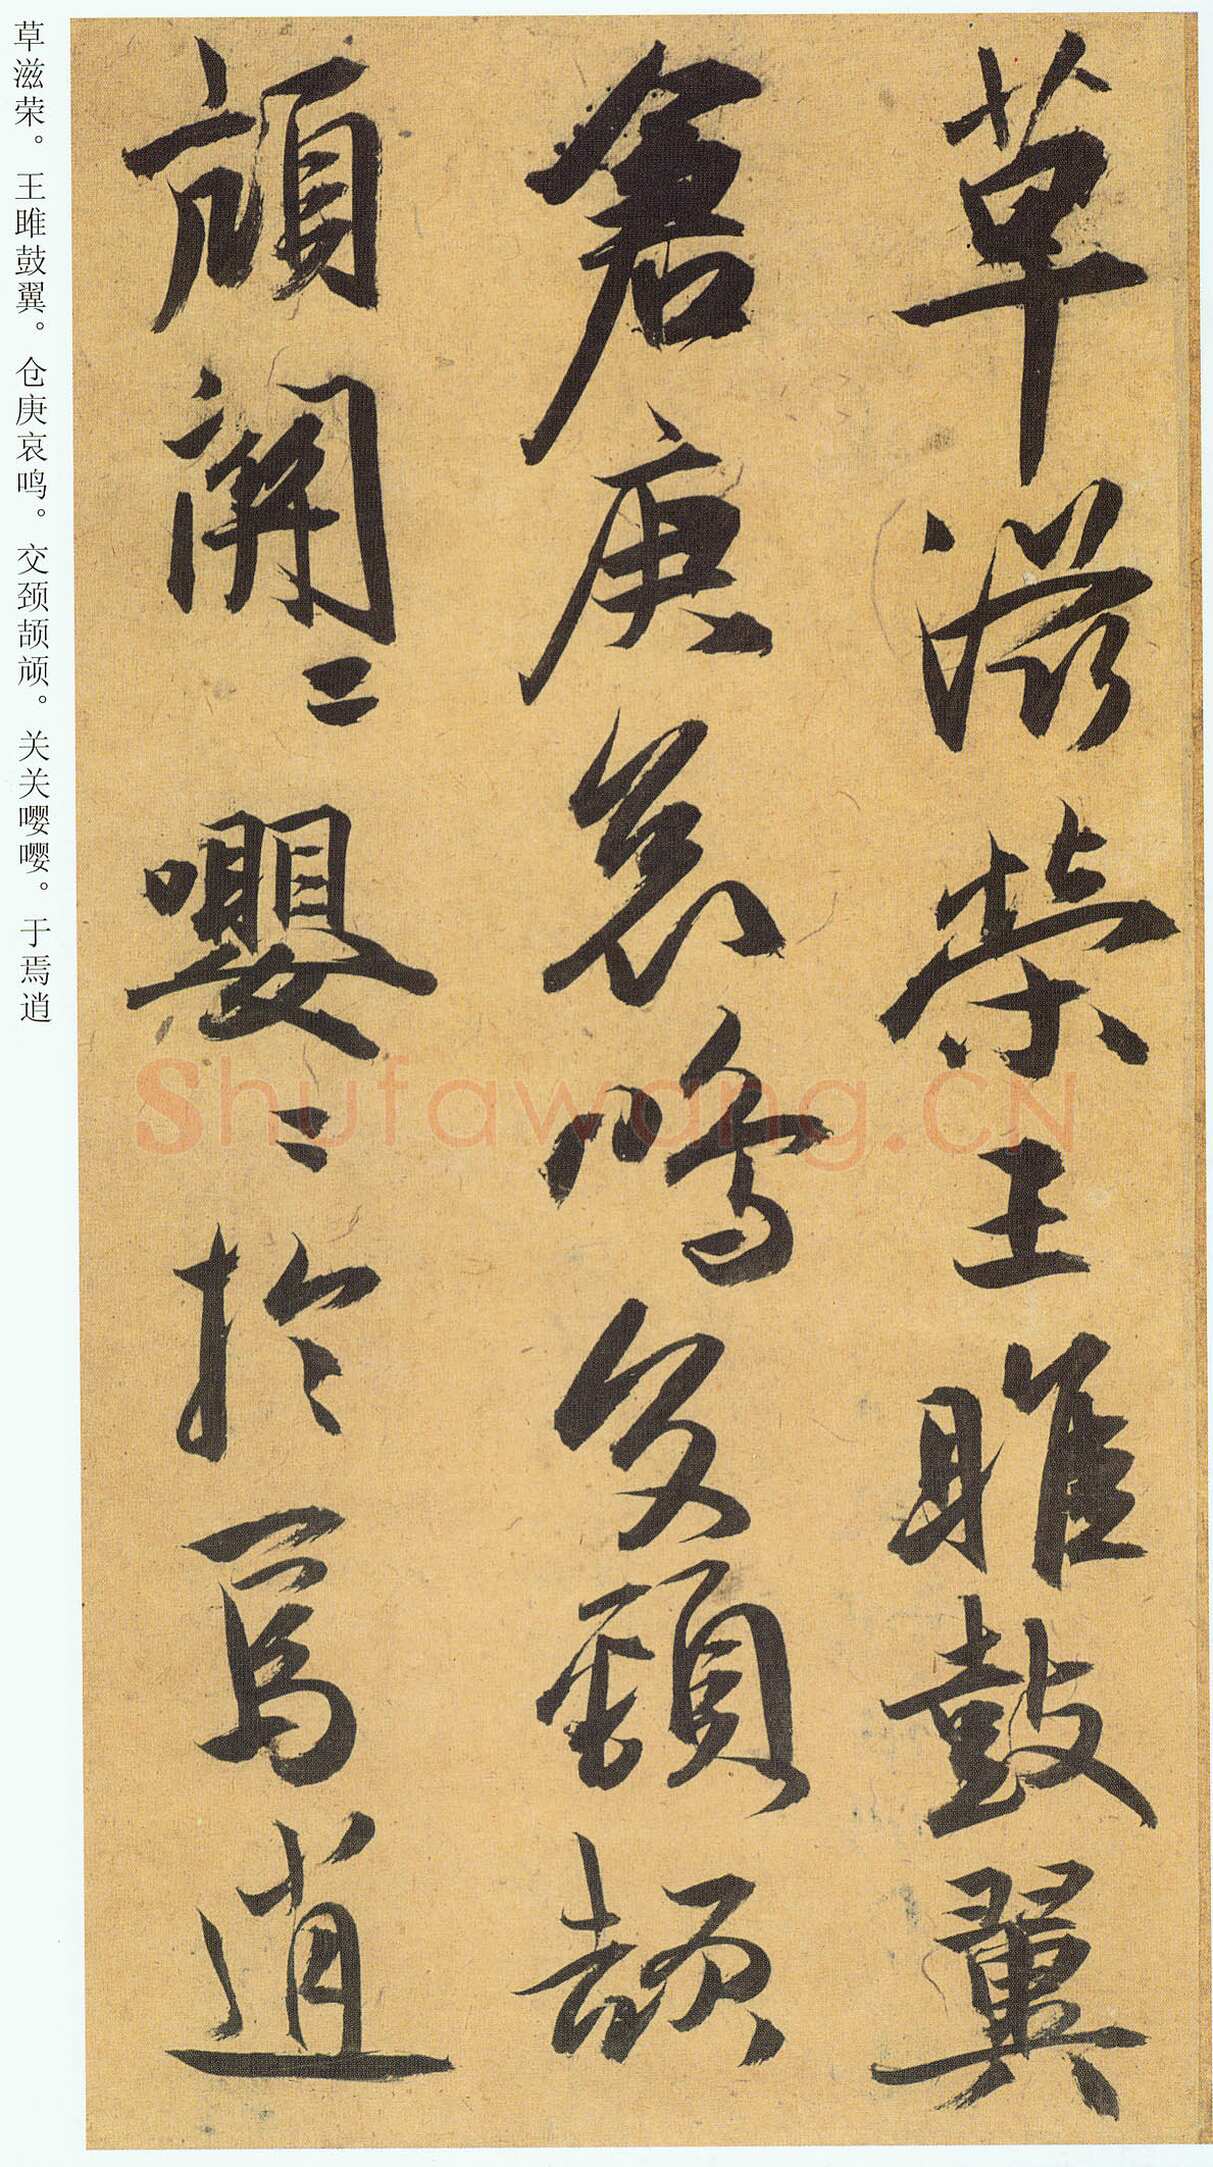 草滋榮王雎鼓翼
倉庚哀鳴交頸頡
頏關〻嚶〻於焉逍
草滋荣。王雎鼓翼。仓庚哀鸣。交颈颉颃。关关嘤嘤。于焉逍
Shufawang.CN